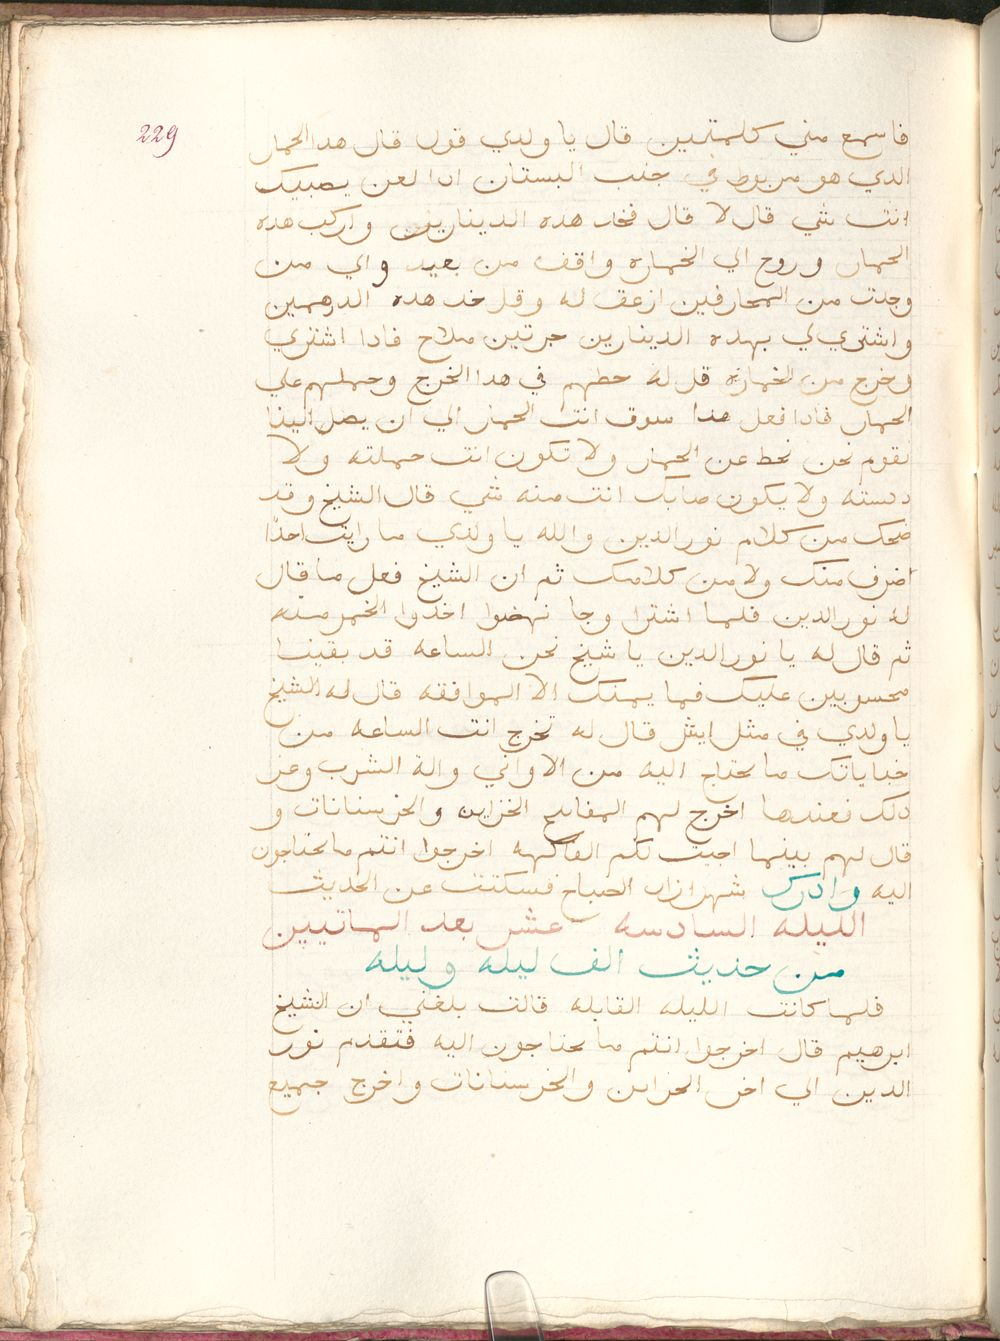 229
فاسمع مني كلمتين قال يا ولدي قول قال هدا الحمار
الدي هو مربوط في جنب البستان ادا لعن يصيبك
انت شي قال لا قال فخد هده الدينارين واركب هده
الحمار وروح الي الخماره واقف من بعيد و اي من
وجدت من المحارفين ازعق له وقل خد هده الدرهمين
واشتري لي بهده الدينارين جرتين ملاح فادا اشتري
وخرج من الخماره قل له حطهم في هدا الخرج وحملهم علي
الحمار فادا فعل هدا سوق انت الحمار الي ان يصل الينا
نقوم نحن نحط عن الحمار ولا تكون انت حملته ولا
دسته ولا يكون صابك انت منه شي قال الشيخ وقد
ضحك من كلام نور الدين والله يا ولدي ما رايت احدًا
اضرف منك ولا من كلامك ثم ان الشيخ فعل ما قال
له نور الدين فلما اشترا وجا نهضوا اخدوا الخمر منه
ثم قال له يا نور الدين يا شيخ نحن الساعه قد بقينا
محسوبين عليك فما يمنك الا الموافقه قال له الشيخ
يا ولدي في مثل ايش قال له تخرج انت الساعه من
خباياتك ما نحتاج اليه من الاواني والة الشرب وغير
دلك فعندها اخرج لهم المفاتيح الخزاين والخرسنانات و
قال لهم بينما اجيت لكم الفاكهه اخرجوا انتم ما تحتاجون
اليه وادرك شهرازاد الصباح فسكتت عن الحديث
الليله السادسه عشر بعد الماتيين
من حديث الف ليله وليله
فلما كانت الليله القابله قالت بلغني ان الشيخ
ابرهيم قال اخرجوا انتم ما تحتاجون اليه فتقدم نور
الدين الي اخر الخزاين والخرسنانات واخرج جميع